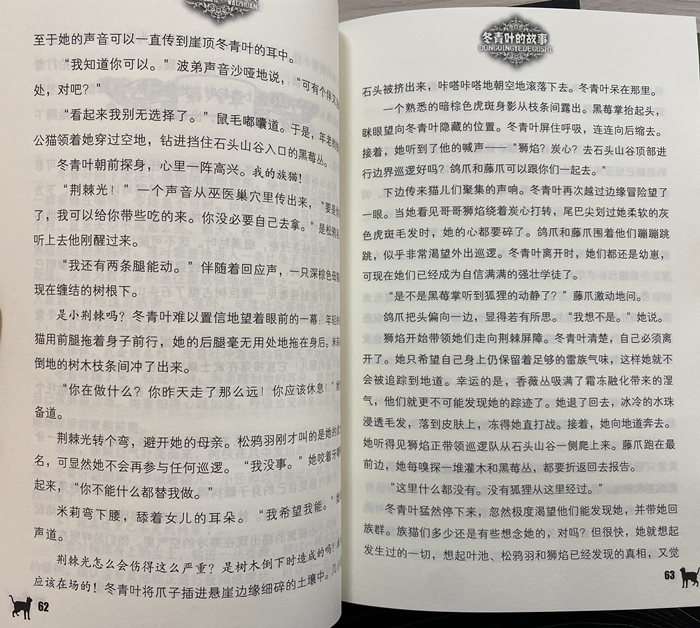 WAIZHUAN
至于她的声音可以一直传到崖顶冬青叶的耳中。
“我知道你可以。”波弟声音沙哑地说，“可有个伴又
处，对吧？”
“看起来我别无选择了。”鼠毛嘟囔道。于是，年老的
公猫领着她穿过空地，钻进挡住石头山谷入口的黑莓丛。
冬青叶朝前探身，心里一阵高兴。我的族猫！
“荆棘光！”一个声音从巫医巢穴里传出来，“要是
了，我可以给你带些吃的来。你没必要自己去拿。”是松鸦
听上去他刚醒过来。
“我还有两条腿能动。”伴随着回应声，一只深棕色母猫
现在缠结的树根下。
是小荆棘吗？冬青叶难以置信地望着眼前的一幕：年轻
猫用前腿拖着身子前行，她的后腿毫无用处地拖在身后。米
倒地的树木枝条间冲了出来。
“你在做什么？你昨天走了那么远！你应该休息！”她
备道。
荆棘光转个弯，避开她的母亲。松鸦羽刚才叫的是她的
名，可显然她不会再参与任何巡逻。“我没事。”她咬着牙
起来，“你不能什么都替我做。”
米莉弯下腰，舔着女儿的耳朵。“我希望我能。”她
声道。
荆棘光怎么会伤得这么严重？是树木倒下时造成的吗？
应该在场的！冬青叶将爪子插进悬崖边缘细碎的土壤中。几
62
冬青叶的故事
DONGQINGYEDEGUSHI
石头被挤出来，咔嗒咔嗒地朝空地滚落下去。冬青叶呆在那里。
一个熟悉的暗棕色虎斑身影从枝条间露出。黑莓掌抬起头，
眯眼望向冬青叶隐藏的位置。冬青叶屏住呼吸，连连向后缩去。
接着，她听到了他的喊声——“狮焰？炭心？去石头山谷顶部进
行边界巡逻好吗？鸽爪和藤爪可以跟你们一起去。”
下边传来猫儿们聚集的声响。冬青叶再次越过边缘冒险望了
一眼。当她看见哥哥狮焰绕着炭心打转，尾巴尖划过她柔软的灰
色虎斑毛发时，她的心都要碎了。鸽爪和藤爪围着他们蹦蹦跳
跳，似乎非常渴望外出巡逻。冬青叶离开时，她们都还是幼崽，
可现在她们已经成为自信满满的强壮学徒了。
“是不是黑莓掌听到狐狸的动静了？”藤爪激动地问。
鸽爪把头偏向一边，显得若有所思。“我想不是。”她说。
狮焰开始带领她们走向荆棘屏障。冬青叶清楚，自己必须离
开了。她只希望自己身上仍保留着足够的雷族气味，这样她就不
会被追踪到地道。幸运的是，香薇丛吸满了霜冻融化带来的湿
气，他们就更不可能发现她的踪迹了。她退了回去，冰冷的水珠
浸透毛发，落到皮肤上，冻得她直打战。接着，她向地道奔去。
她听得见狮焰正带领巡逻队从石头山谷一侧爬上来。藤爪跑在最
前边，她每嗅探一堆灌木和黑莓丛，都要折返回去报告。
“这里什么都没有。没有狐狸从这里经过。”
冬青叶猛然停下来，忽然极度渴望他们能发现她，并带她回
族群。族猫们多少还是有些想念她的，对吗？但很快，她就想起
发生过的一切，想起叶池、松鸦羽和狮焰已经发现的真相，又觉
63